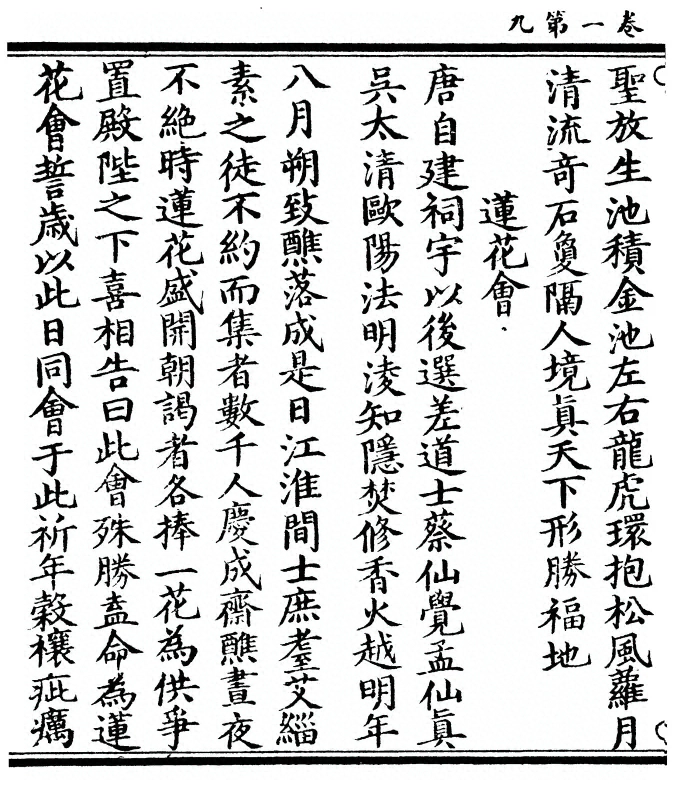 卷一第九
聖放生池積金池左右龍虎環抱松風蘿月
清流奇石敻隔人境眞天下形勝福地
蓮花會
唐自建祠宇以後選差道士蔡仙覺孟仙眞
吳太清歐陽法明淩知隱焚修香火越明年
八月朔致醮落成是日江淮間士庶耋艾緇
素之徒不約而集者數千人慶成齋醮晝夜
不絶時蓮花盛開朝謁者各捧一花為供爭
置殿陛之下喜相告曰此會殊勝盍命為蓮
花會誓歲以此日同會于此祈年穀禳疵癘